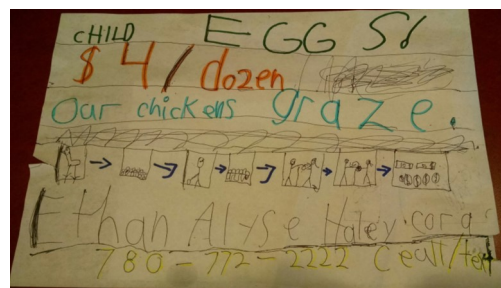 CHILD EGGS!
$4/dozen
Our chickens graze.
Ethan Alyse Haley Cora
780-772-2222 Ceall/text